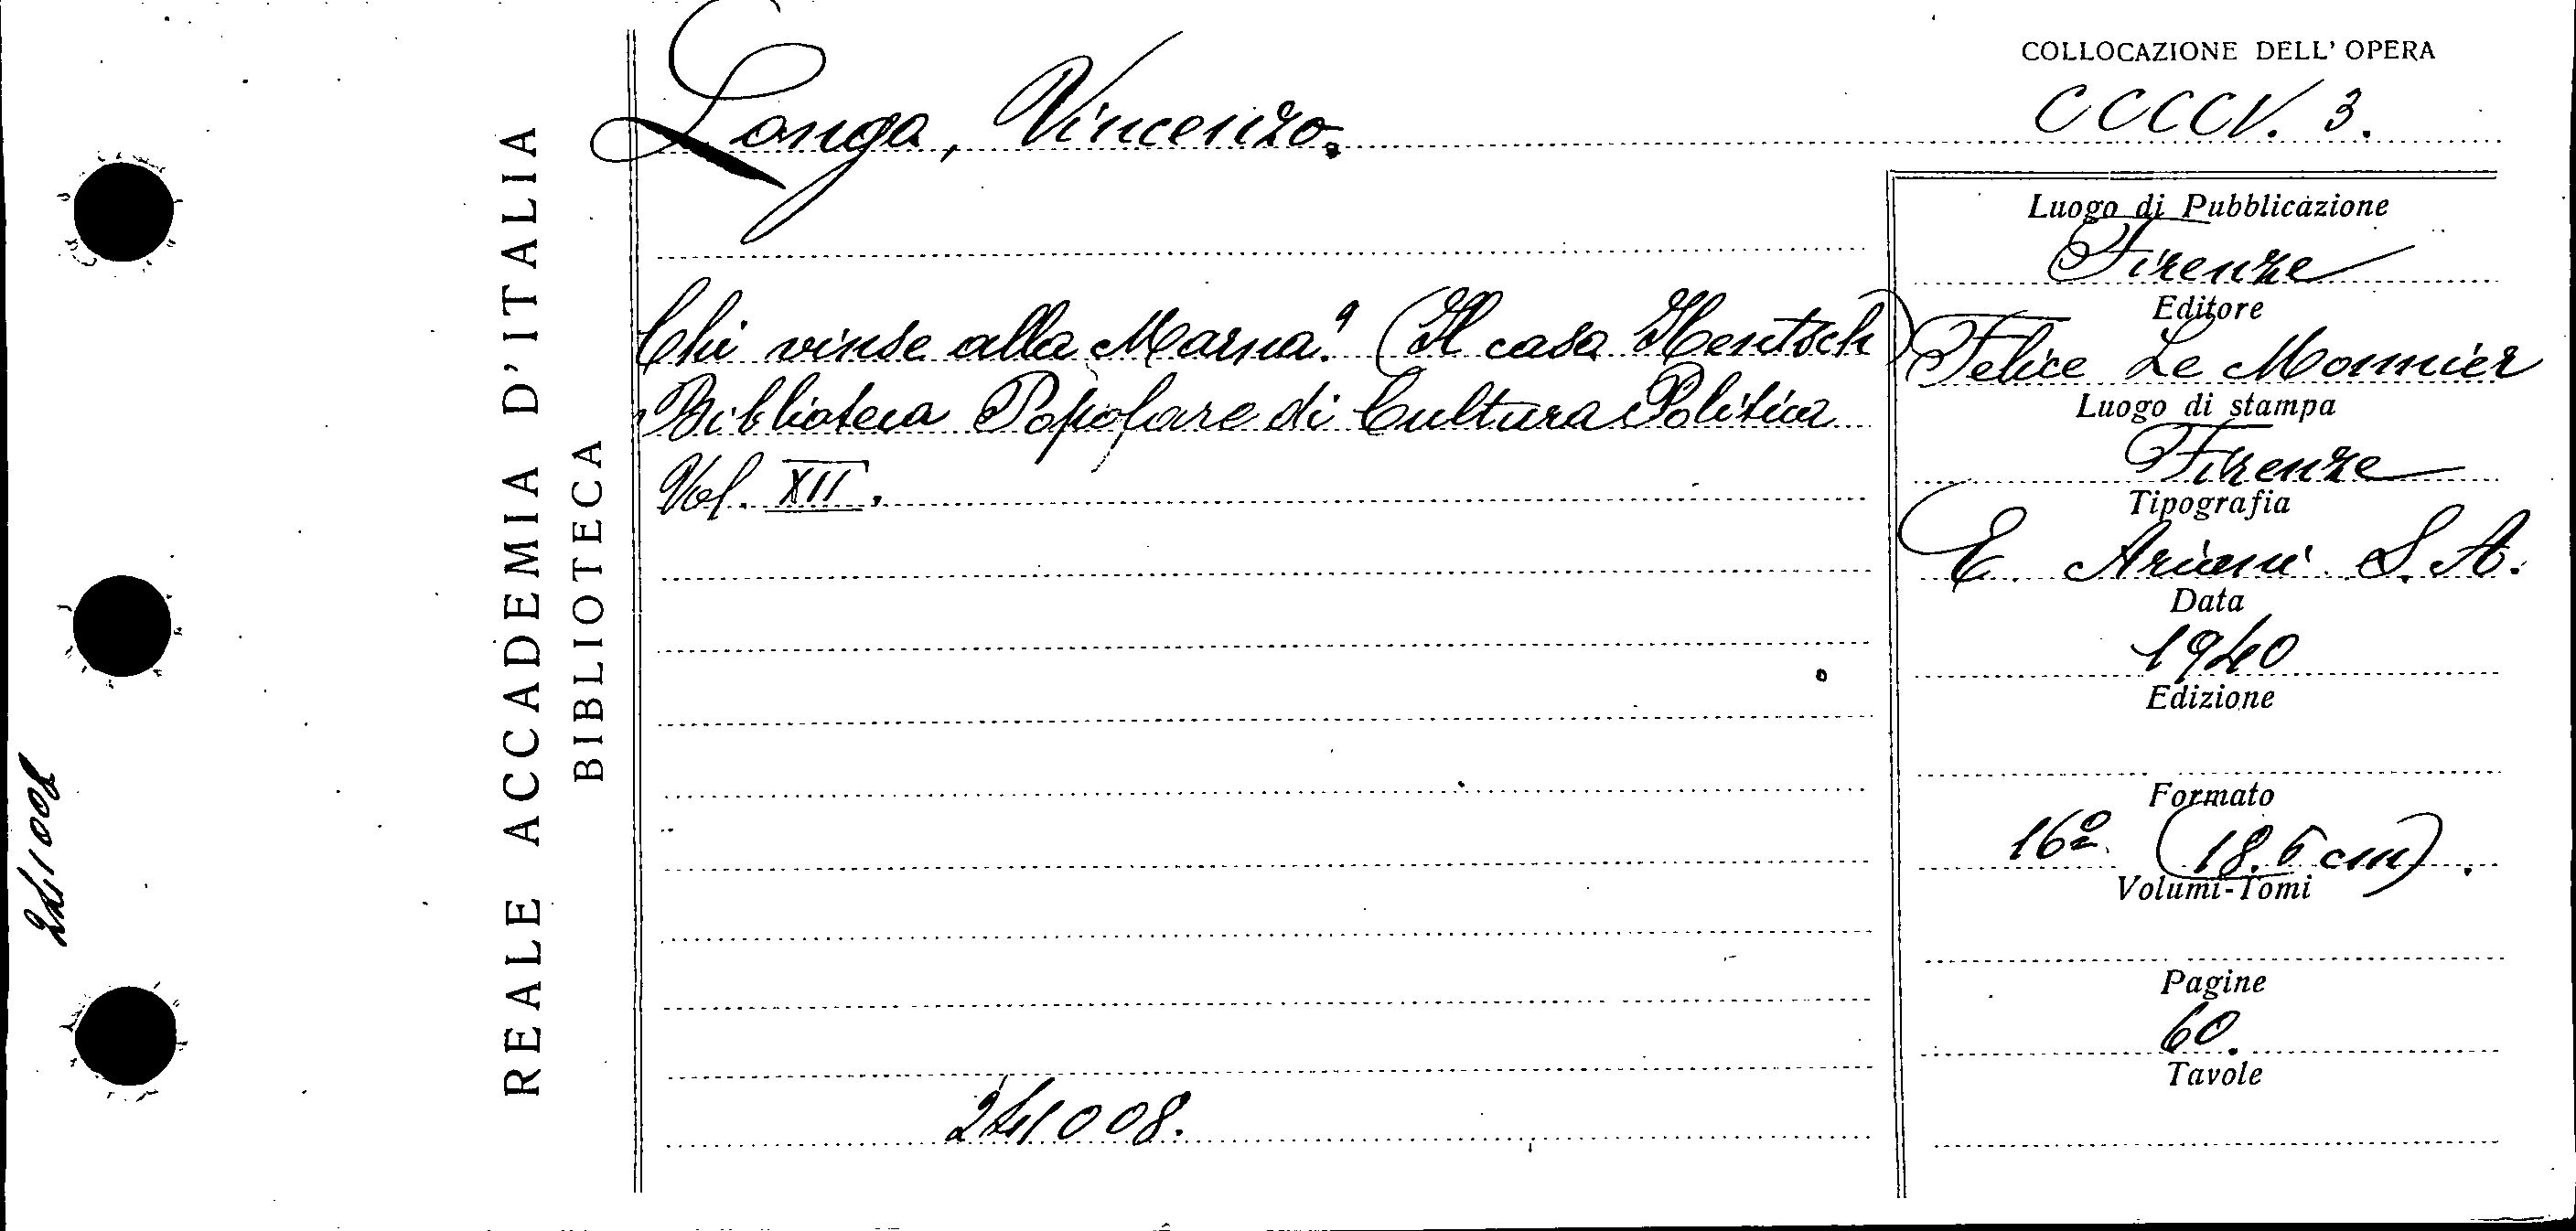 COLLOCAZIONE DELL' OPERA
Longa, Vincenzo.
CCCCV. 3.
Chi vinse alla Marna? (Il caso Hentsch)
Biblioteca Popolare di Cultura Politica
Vol. XII.
241008.
Luogo di Pubblicazione
Firenze
Editore
Felice Le Monnier
Luogo di stampa
Firenze
Tipografia
E. Ariani S. A.
Data
1940
Edizione
Formato
16º (18.5 cm).
Volumi-Tomi
Pagine
60.
Tavole
REALE ACCADEMIA D'ITALIA
BIBLIOTECA
241008